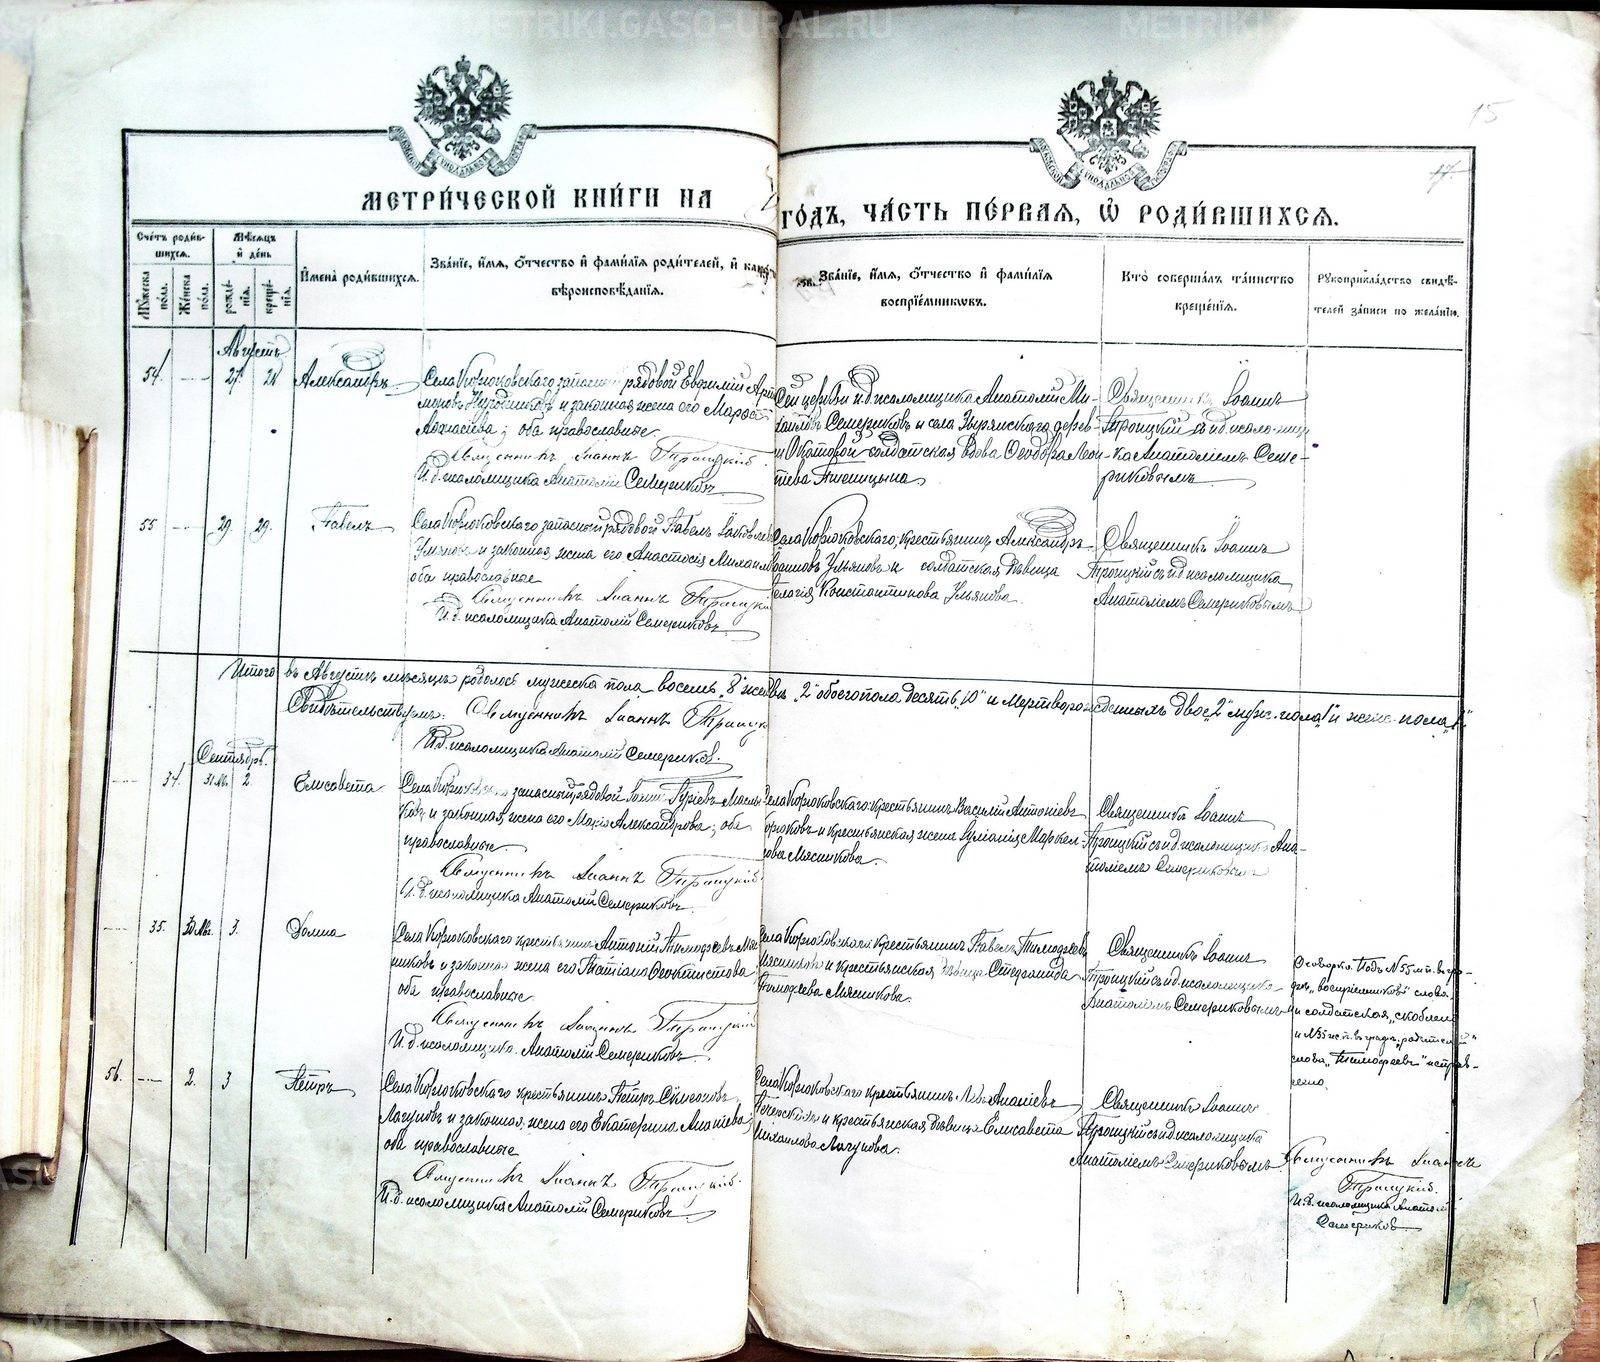 METRIKI.GASO-URAL.RU
15
17.
МЕТРИ́ЧЕСКОЙ КНИ́ГИ НА
ГО́ДЪ, ЧА́СТЬ ПЕ́РВАЯ, Ѡ РОДИ́ВШИХСЯ.
Сче́тъ роди́в-
шихся.
Мѣ́сяцъ
и҆ де́нь
Му́жеска по́ла.
Же́нска по́ла.
рожде́нія.
креще́нія.
И҆мена̀ роди́вшихся.
Зва́ніе, и҆́мя, о҆́тчество и҆ фами́лія роди́телей, и҆ како́гѡ
вѣроисповѣ́данія.
Зва́ніе, и҆́мя, о҆́тчество и҆ фами́лія
воспріе́мникѡвъ.
Кто̀ соверша́лъ та́инство
креще́нія.
Рукоприкла́дство свидѣ́-
телей за́писи по жела́нію.
Августъ
54. 27. 28 Александръ
Села Корюковскаго запасный рядовой Евфимій
и законная жена его Марѳа
оба православные.
Священникъ Іоаннъ Троицкій
И. д. псаломщика Анатолій Семериковъ
Сей церкви и. д. псаломщика Анатолій Ми-
хаиловъ Семериковъ и села Зырянскаго дерев-
ни Окатовой солдатская вдова Ѳеодора
Пшеницына
Священникъ Іоаннъ
Троицкій съ и. д. псаломщи-
ка Анатоліемъ Семе-
риковымъ
55 29. 29. Павелъ
Села Корюковскаго запасный рядовой Павелъ
и законная жена его Анастасія
оба православные
Священникъ Іоаннъ Троицкій
И. д. псаломщика Анатолій Семериковъ
Села Корюковскаго, крестьянинъ Александръ
Ульяновъ и солдатская дѣвица
Пелагія Константинова Ульянова.
Священникъ Іоаннъ
Троицкій съ и. д. псаломщика
Анатоліемъ Семериковымъ
Итого въ Августѣ мѣсяцѣ родилось мужеска пола восемь „8“ женска „2“ обоего пола десять „10“ и мертворожденныхъ двое „2“ муж. пола „1“ и жен. пола „1“
Свидѣтельствуемъ: Священникъ Іоаннъ Троицкій
И. д. псаломщика Анатолій Семериковъ.
Сентябрь.
34. 31 Ав. 2. Елисавета
Села Корюковскаго запасный рядовой Іоаннъ Гуріевъ
и законная жена его Марія Александрова, оба
православные.
Священникъ Іоаннъ Троицкій
И. д. псаломщика Анатолій Семериковъ.
Села Корюковскаго крестьянинъ Василій Антоніевъ
Корюковъ и крестьянская жена Іуліанія Маркел-
лова Мясникова.
Священникъ Іоаннъ
Троицкій съ и. д. псаломщика Ана-
толіемъ Семериковымъ
35. 30 Ав. 3. Домна
Села Корюковскаго крестьянинъ Антоній Тимоѳеевъ Мяс-
никовъ и законная жена его Татіана Ѳеоктистова
оба православные
Священникъ Іоаннъ Троицкій
И. д. псаломщика Анатолій Семериковъ
Села Корюковскаго крестьянинъ Павелъ Тимоѳеевъ
Мясниковъ и крестьянская дѣвица Стефанида
Тимоѳеева Мясникова.
Священникъ Іоаннъ
Троицкій съ и. д. псаломщика
Анатоліемъ Семериковымъ
Оговорка. Подъ № 55 м. п. въ гра-
фѣ „воспріемниковъ“ слова
и солдатская „скоблено
и № 35 ж. п. въ графѣ „родителей“
слова „Тимоѳеевъ“ исправ-
лено.
56. 2. 3 Петръ
Села Корюковскаго крестьянинъ Петръ
Лагуновъ и законная жена его Екатерина Ананіева,
оба православные
Священникъ Іоаннъ Троицкій.
И. д. псаломщика Анатолій Семериковъ
Села Корюковскаго крестьянинъ Левъ Ананіевъ
и крестьянская дѣвица Елисавета
Михаилова Лагунова.
Священникъ Іоаннъ
Троицкій съ и. д. псаломщика
Анатоліемъ Семериковымъ
Священникъ Іоаннъ
Троицкій.
И. д. псаломщика Анатолій
Семериковъ